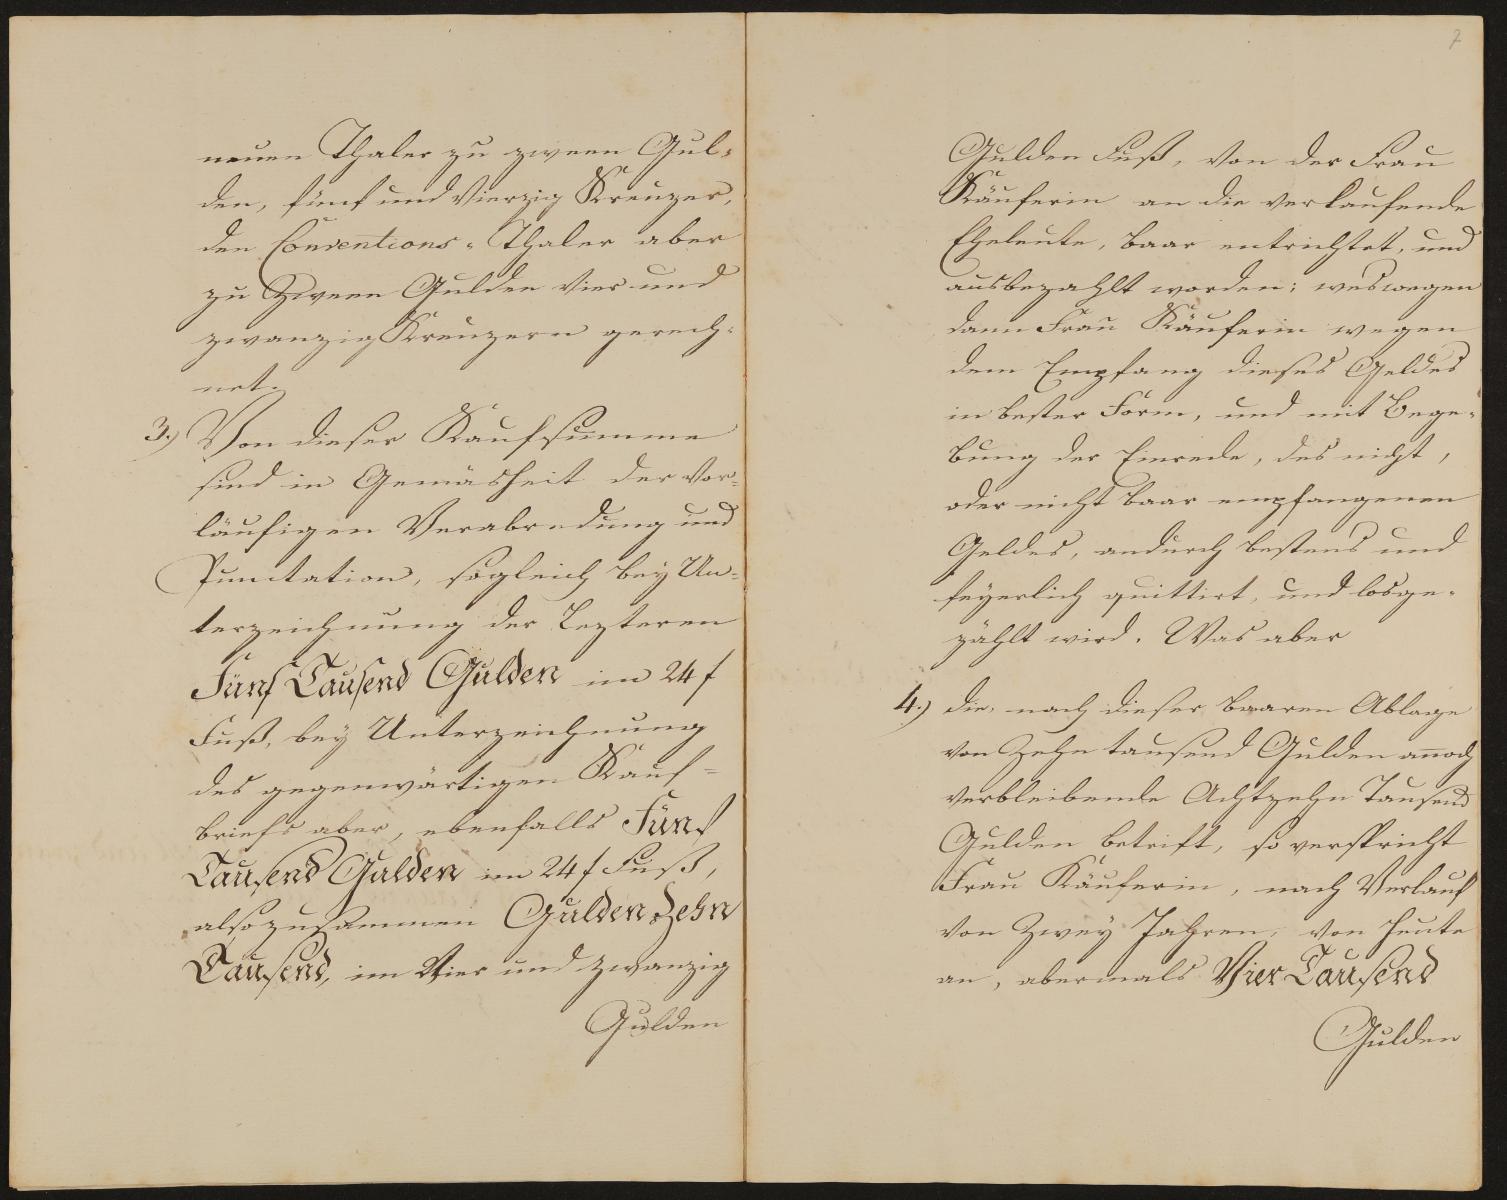 neuen Thaler zu zween Gul-
den, fünf und Vierzig Kreuzer,
den Conventions-Thaler aber
zu Zween Gulden Vier und
zwanzig Kreuzern gerech-
net.
3.) Von dieser Kaufsumme
sind in Gemäsheit der Vor-
läufigen Verabredung und
Punctation, sogleich bey Un-
terzeichnung der Lezteren
Fünf Tausend Gulden im 24 f
Fuß, bey Unterzeichnung
des gegenwärtigen Kauf-
briefs aber, ebenfalls Fünf
Tausend Gulden im 24 f Fuß,
also zusammen Gulden Zehn
Tausend, im Vier und zwanzig
Gulden
7
Gulden Fuß, von der Frau
Käuferin an die verkaufende
Eheleute, baar entrichtet, und
ausbezahlt worden; weswegen
dann Frau Käuferin wegen
dem Empfang dieses Geldes
in bester Form, und mit Bege-
bung der Einrede, des nicht,
oder nicht baar empfangenen
Geldes, andurch bestens und
feyerlich quittirt, und losge-
zählt wird. Was aber
4.) die, nach dieser baaren Ablage
von Zehn tausend Gulden annoch
verbleibende Achtzehn Tausend
Gulden betrift, so verspricht
Frau Käuferin, nach Verlauf
von Zwey Jahren, von heute
an, abermals Vier Tausend
Gulden